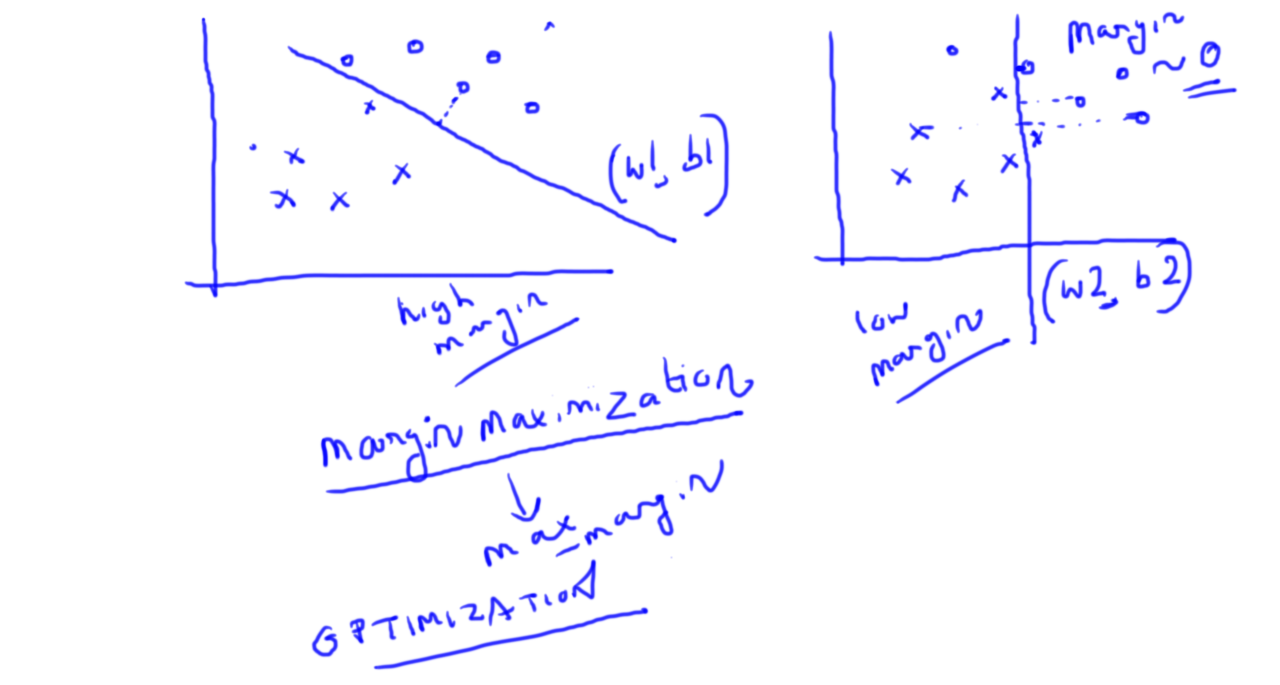 (w1, b1)
high
margin
margin
~ 0
(w2, b2)
low
margin
margin maximization
max_margin
OPTIMIZATION